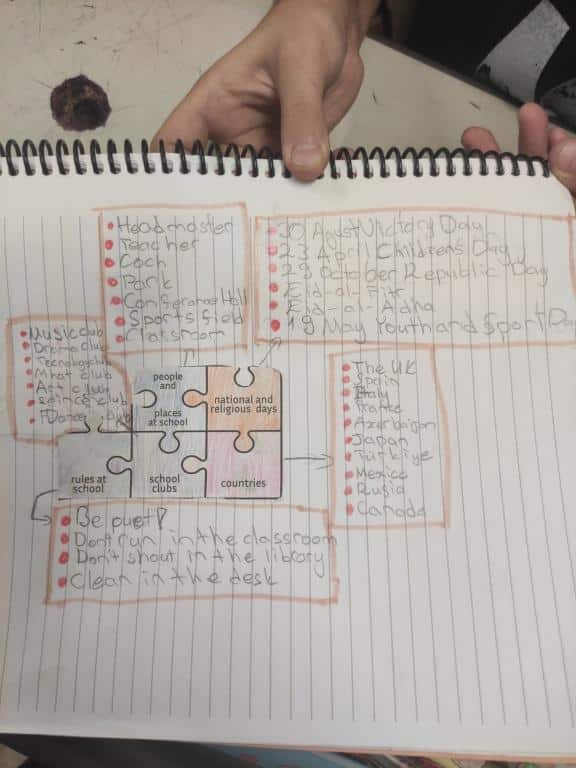 Headmaster
Teacher
Coch
Park
Conferance Hall
Sports field
Clansroom
30 Agust Victory Day
23 April Childrens Day
29 October Republic Day
Eid-al-Fitr
Eid-al-Adha
19 May Youth and Sport Day
Music club
Drama club
Tecnology club
Mhat club
Art club
science club
Dance club
people
and
places
at school
national and
religious days
rules at
school
school
clubs
countries
The UK
Spain
Italy
Azerbaijan
Japan
Türkiye
Mexico
Rusia
Canada
Be puet!
Don't run in the classroom
Don't shout in the library
Clean in the desk